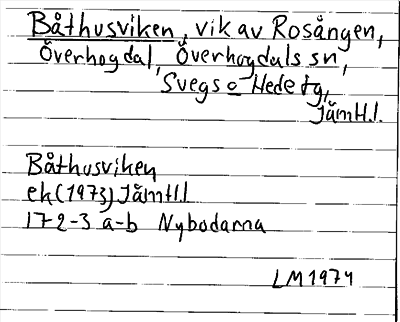 Båthusviken, vik av Rosången,
Överhogdal, Överhogdals sn,
Svegs o Hede tg,
Jämtl.l.
Båthusviken
ek(1973)Jämtl.l
17 2-3 a-b Nybodarna
LM1974